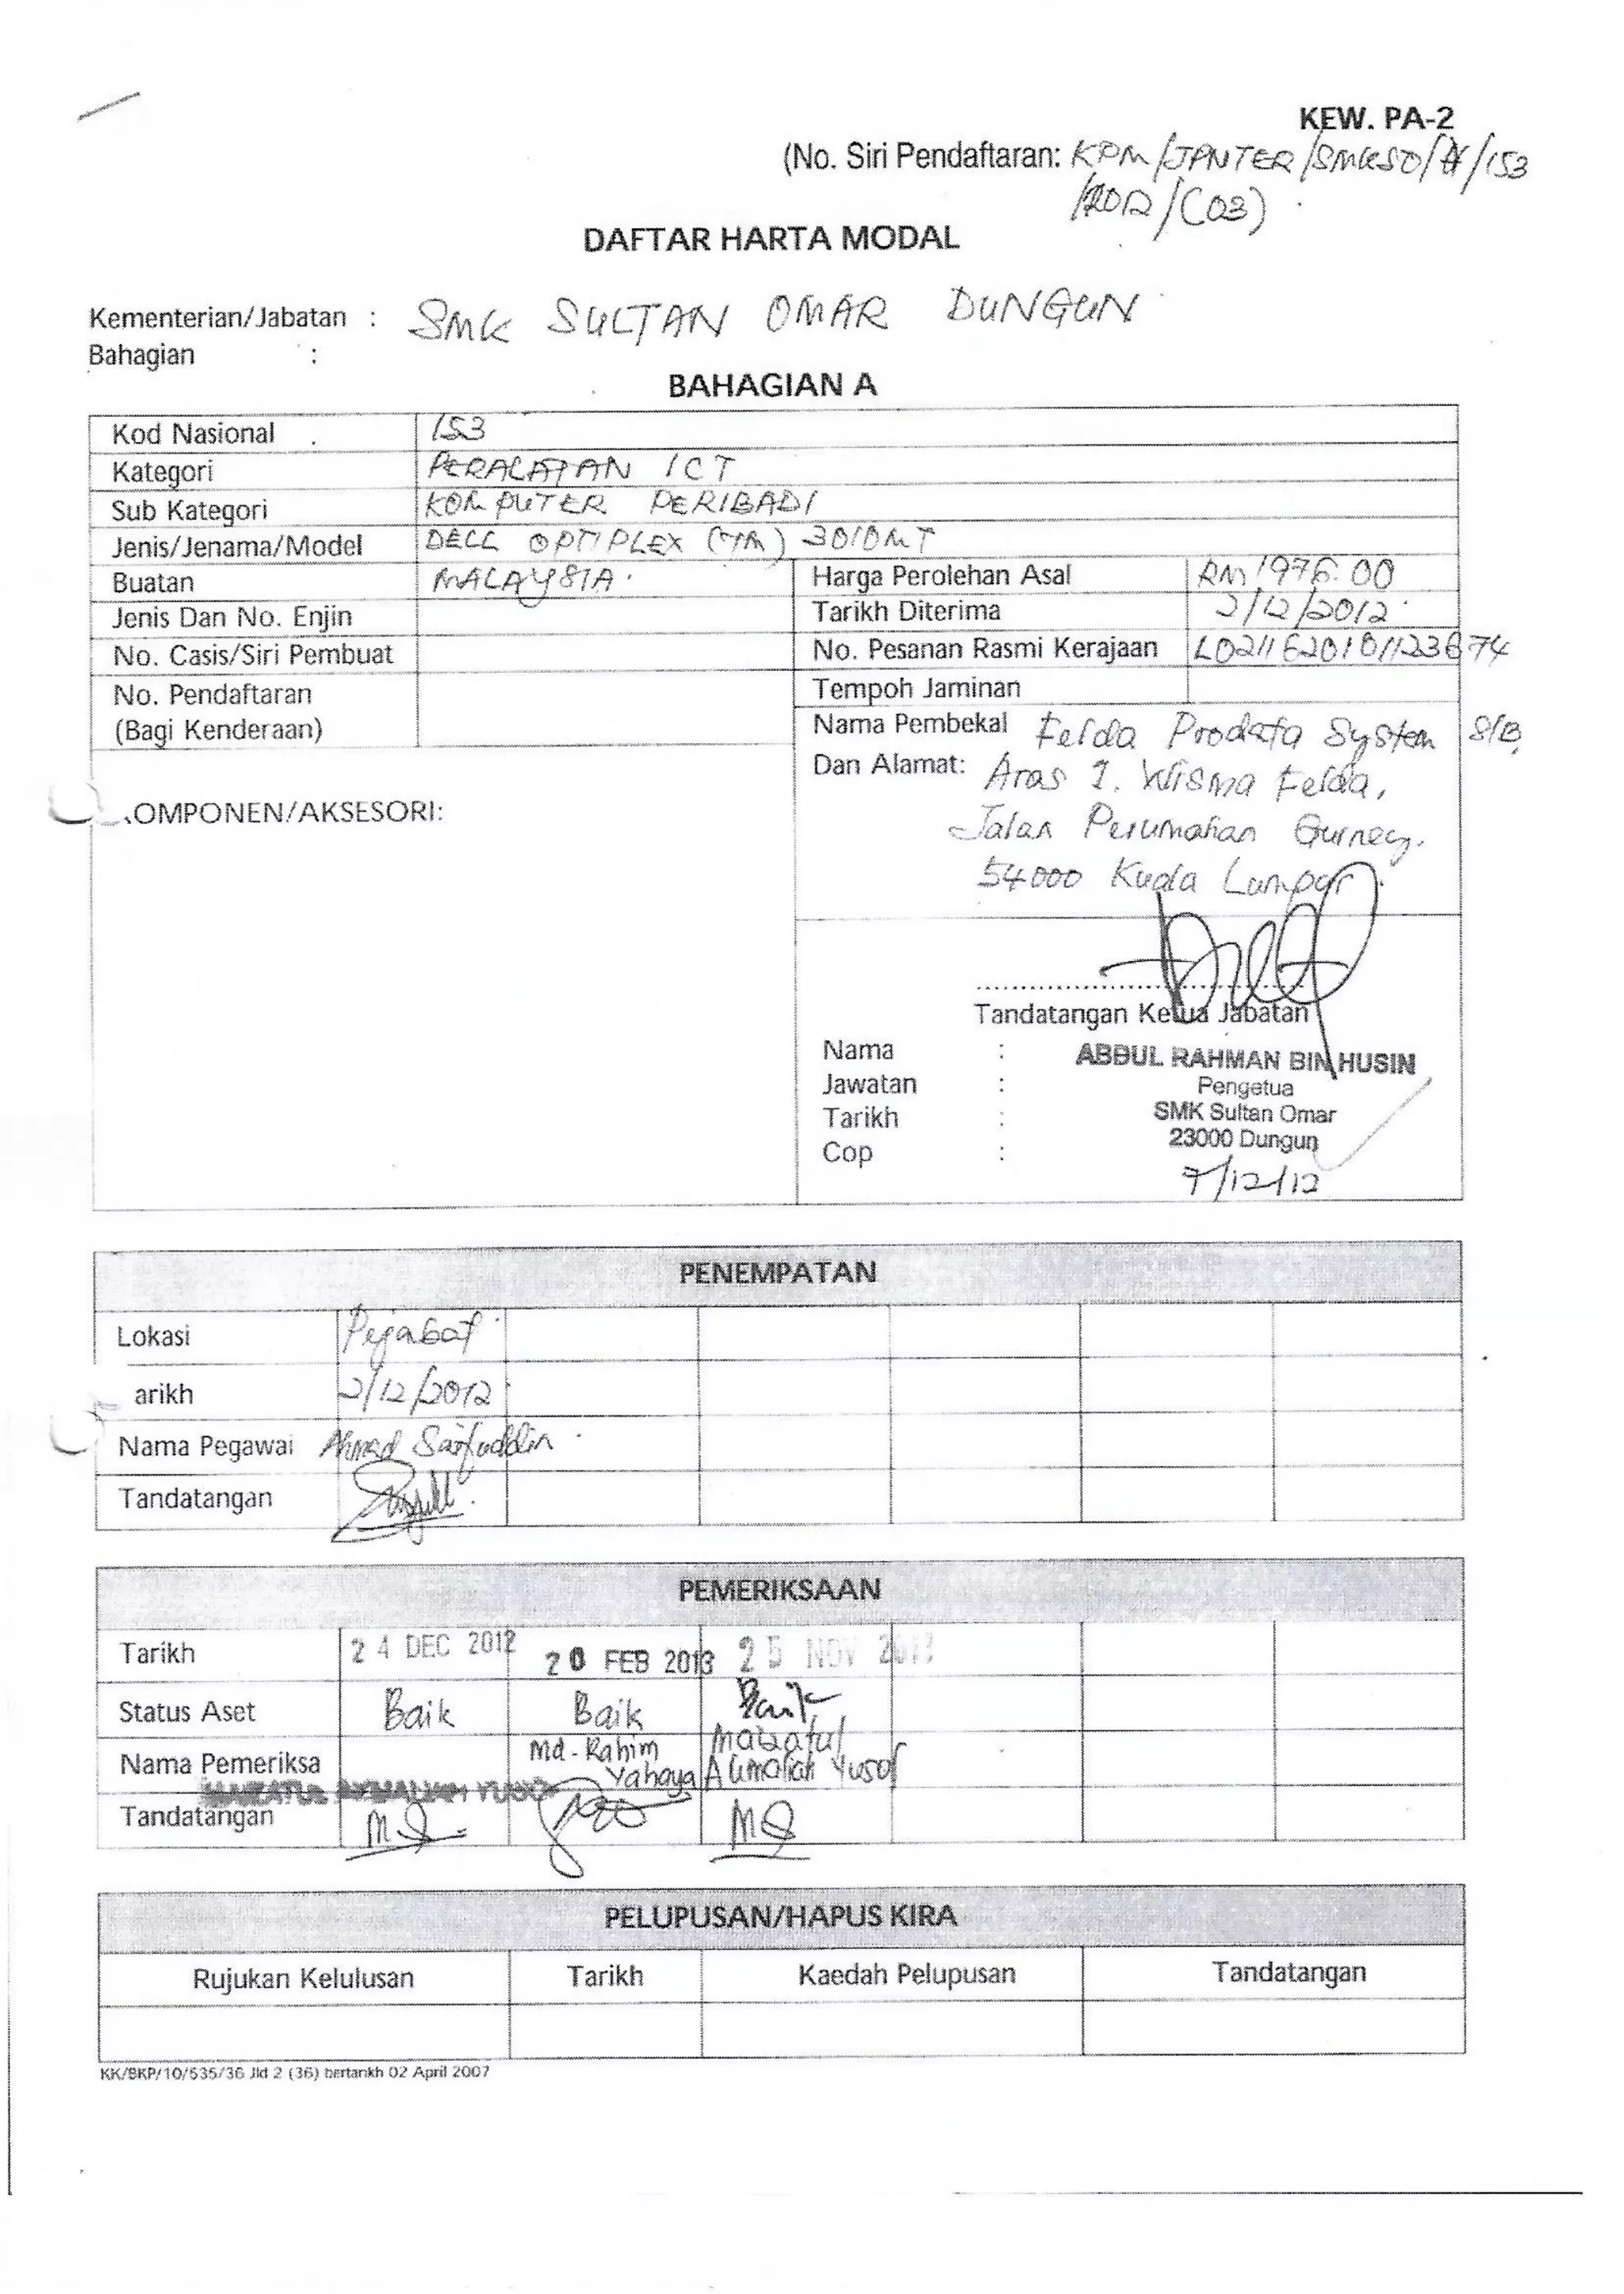 KEW. PA-2
(No. Siri Pendaftaran: KPM/JPNTER/SMKSO/H/153
/2012/(03)
DAFTAR HARTA MODAL
Kementerian/Jabatan : SMK SULTAN OMAR DUNGUN
Bahagian :
BAHAGIAN A
Kod Nasional 153
Kategori PERALATAN ICT
Sub Kategori KOMPUTER PERIBADI
Jenis/Jenama/Model DELL OPTIPLEX (TM) 3010MT
Buatan MALAYSIA Harga Perolehan Asal RM 1976.00
Jenis Dan No. Enjin Tarikh Diterima 2/12/2012
No. Casis/Siri Pembuat No. Pesanan Rasmi Kerajaan
No. Pendaftaran Tempoh Jaminan
(Bagi Kenderaan) Nama Pembekal Felda Prodata System S/B,
Dan Alamat: Aras 1. Wisma Felda,
OMPONEN/AKSESORI:
Jalan Perumahan Gurney.
54000 Kuala Lumpur.
Tandatangan Ketua Jabatan
Nama : ABDUL RAHMAN BIN HUSIN
Jawatan : Pengetua
Tarikh : SMK Sultan Omar
23000 Dungun
Cop :
7/12/12
PENEMPATAN
Lokasi Pejabat
arikh 2/12/2012
Nama Pegawai Ahmad Saifuddin
Tandatangan
PEMERIKSAAN
Tarikh 24 DEC 2012 20 FEB 2013 25 NOV 2013
Status Aset Baik Baik Baik
Nama Pemeriksa Md. Rahim Yahaya Yusof
Tandatangan
PELUPUSAN/HAPUS KIRA
Rujukan Kelulusan Tarikh Kaedah Pelupusan Tandatangan
KK/BKP/10/535/36 Jld 2 (36) bertarikh 02 April 2007